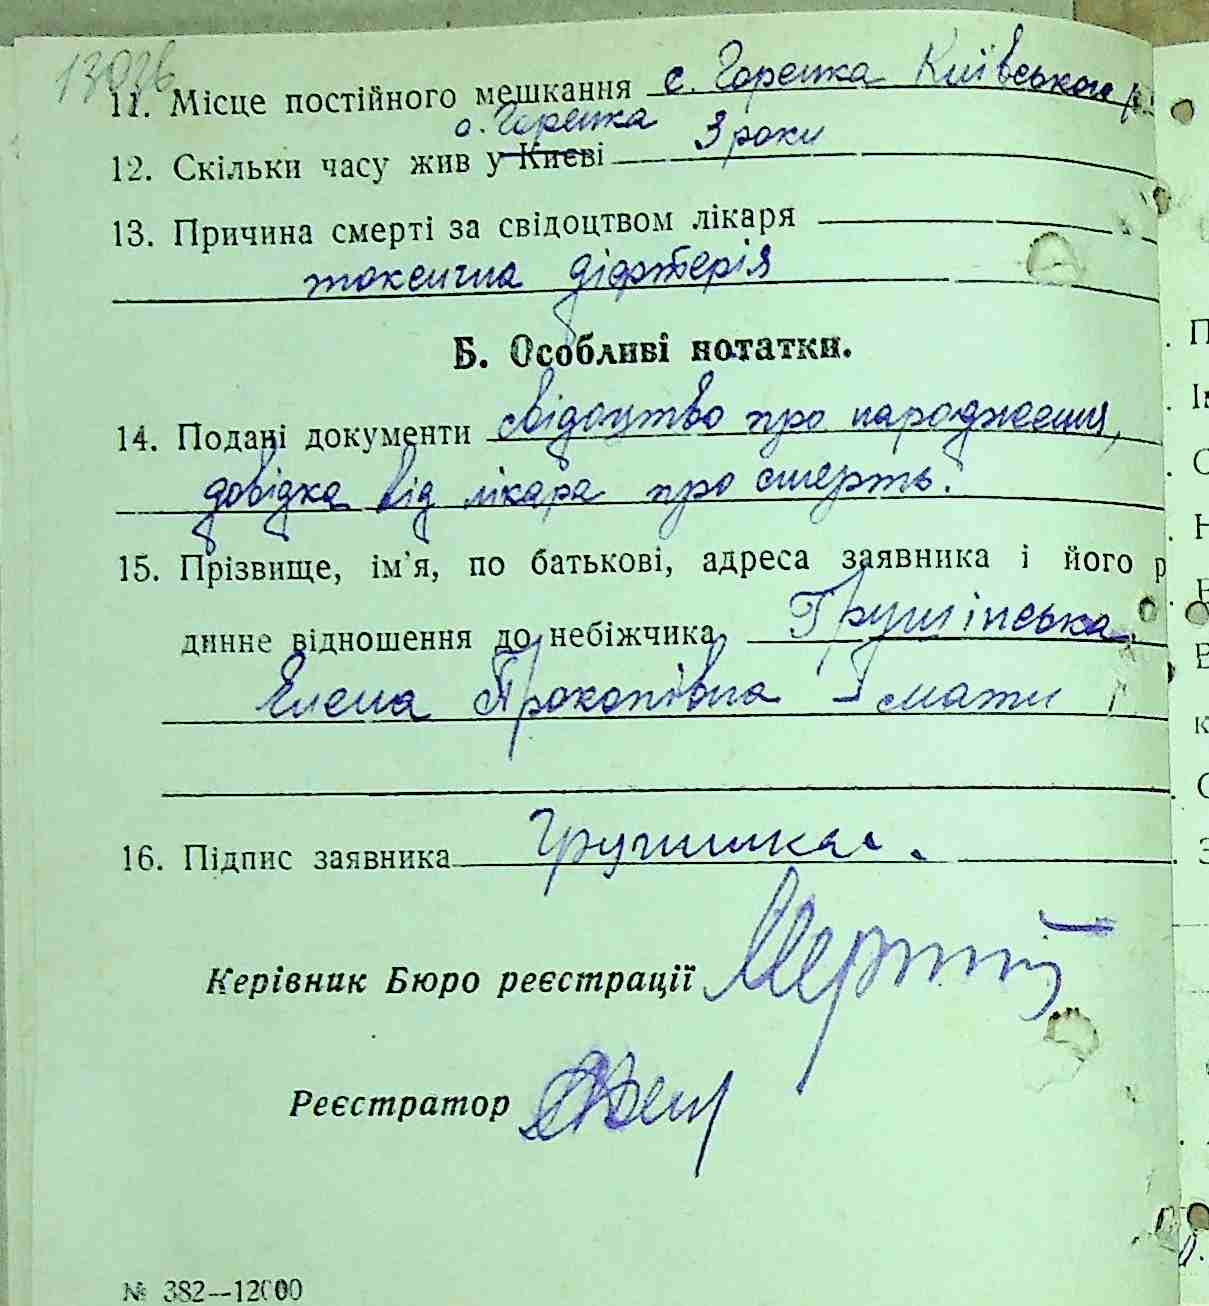 11. Місце постійного мешкання с. Горенка Київського р.
с. Горенка
12. Скільки часу жив у Києві 3 роки
13. Причина смерті за свідоцтвом лікаря
токсична діфтерія
Б. Особливі нотатки.
14. Подані документи свідоцтво про народження,
довідка від лікара про смерть.
15. Прізвище, ім'я, по батькові, адреса заявника і його р
динне відношення до небіжчика Грушінська
Елена Прокопівна - мати
16. Підпис заявника
Керівник Бюро реєстрації
Реєстратор
№ 382—12000